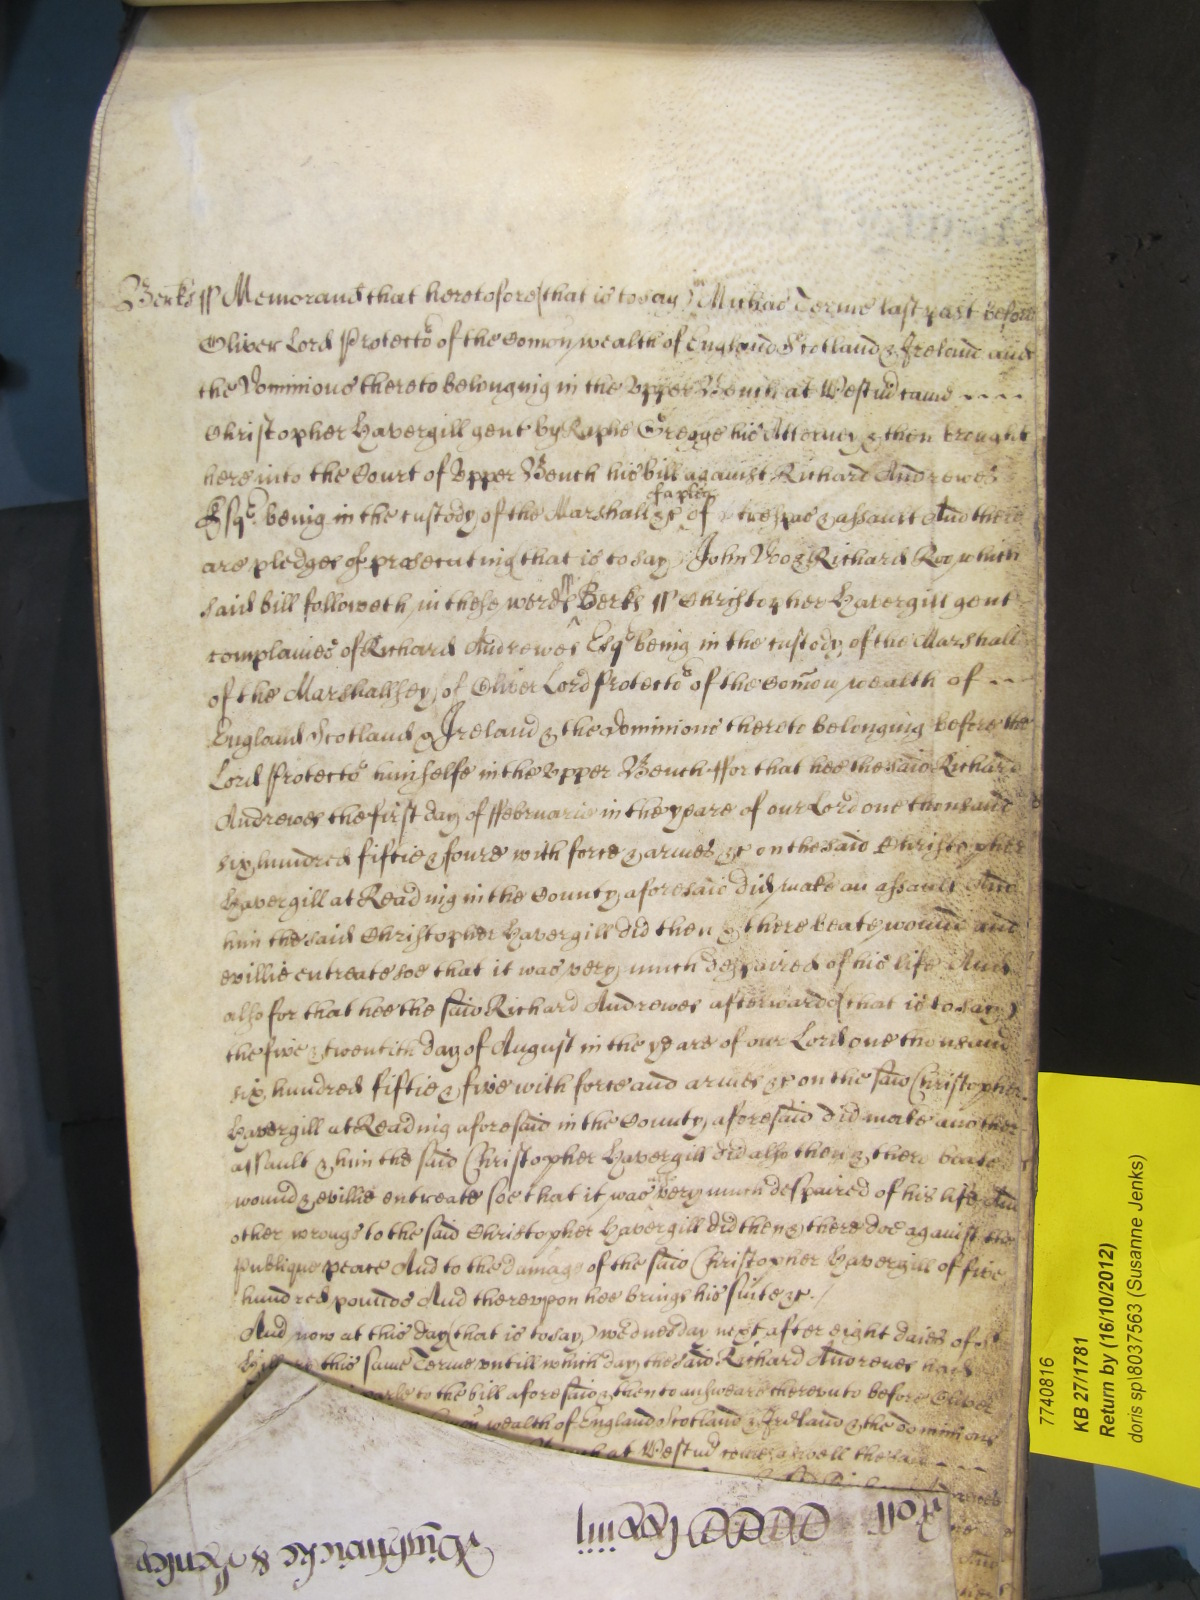 Berks ss Memorand that heretofore (that is to say) in Michas Terme last past before
Oliver Lord Protector of the Comon wealth of England Scotland & Ireland and
the Dominions thereto belonging in the Upper Bench at Westm came ----
Christopher Havergill gent by Raphe Gregge his Attorney & then brought
here into the Court of Upper Bench his bill against Richard Andrewes
Esqr. being in the custody of the Marshall &c of a plea of trespas & assault And there
are pledges of prosecuting (that is to say) John Doo & Richard Roo which
said bill followeth in these words ss Berks ss Christopher Havergill gent
complaines of Richard Andrewes Esqr being in the custody of the Marshall
of the Marshallsey of Oliver Lord Protector of the Comon wealth of --
England Scotland & Ireland & the dominions thereto belonging before the
Lord Protector himselfe in the Upper Bench ffor that hee the said Richard
Andrewes the first day of ffebruarie in the yeare of our Lord one thousand
six hundred fiftie & foure with force & armes &c on the said Christopher
Havergill at Reading in the County aforesaid did make an assault And
him the said Christopher Havergill did then & there beate wound and
evillie entreate soe that it was very much despaired of his life And
also for that hee the said Richard Andrewes afterwards (that is to say)
the five & twentith day of August in the yeare of our Lord one thousand
six hundred fiftie & five with force and armes &c on the said Christopher
Havergill at Reading aforesaid in the County aforesaid did make another
assault & him the said Christopher Havergill did also then & there beate
wound & evillie entreate soe that it was very much despaired of his life And
other wrongs to the said Christopher Havergill did then & there doe against the
publique peace And to the damage of the said Christopher Havergill of five
hundred pounds And thereupon hee brings his suite &c./
And now at this day (that is to say) wednesday next after eight daies of St
this same Terme untill which day the said Richard Andrewes had
to the bill aforesaid & then to answeare thereunto before Oliver
wealth of England Scotland & Ireland & the dominions
at Westm come aswell the said ---
Roll
Rushworth &
7740816
KB 27/1781
Return by (16/10/2012)
doris sp\8037563 (Susanne Jenks)